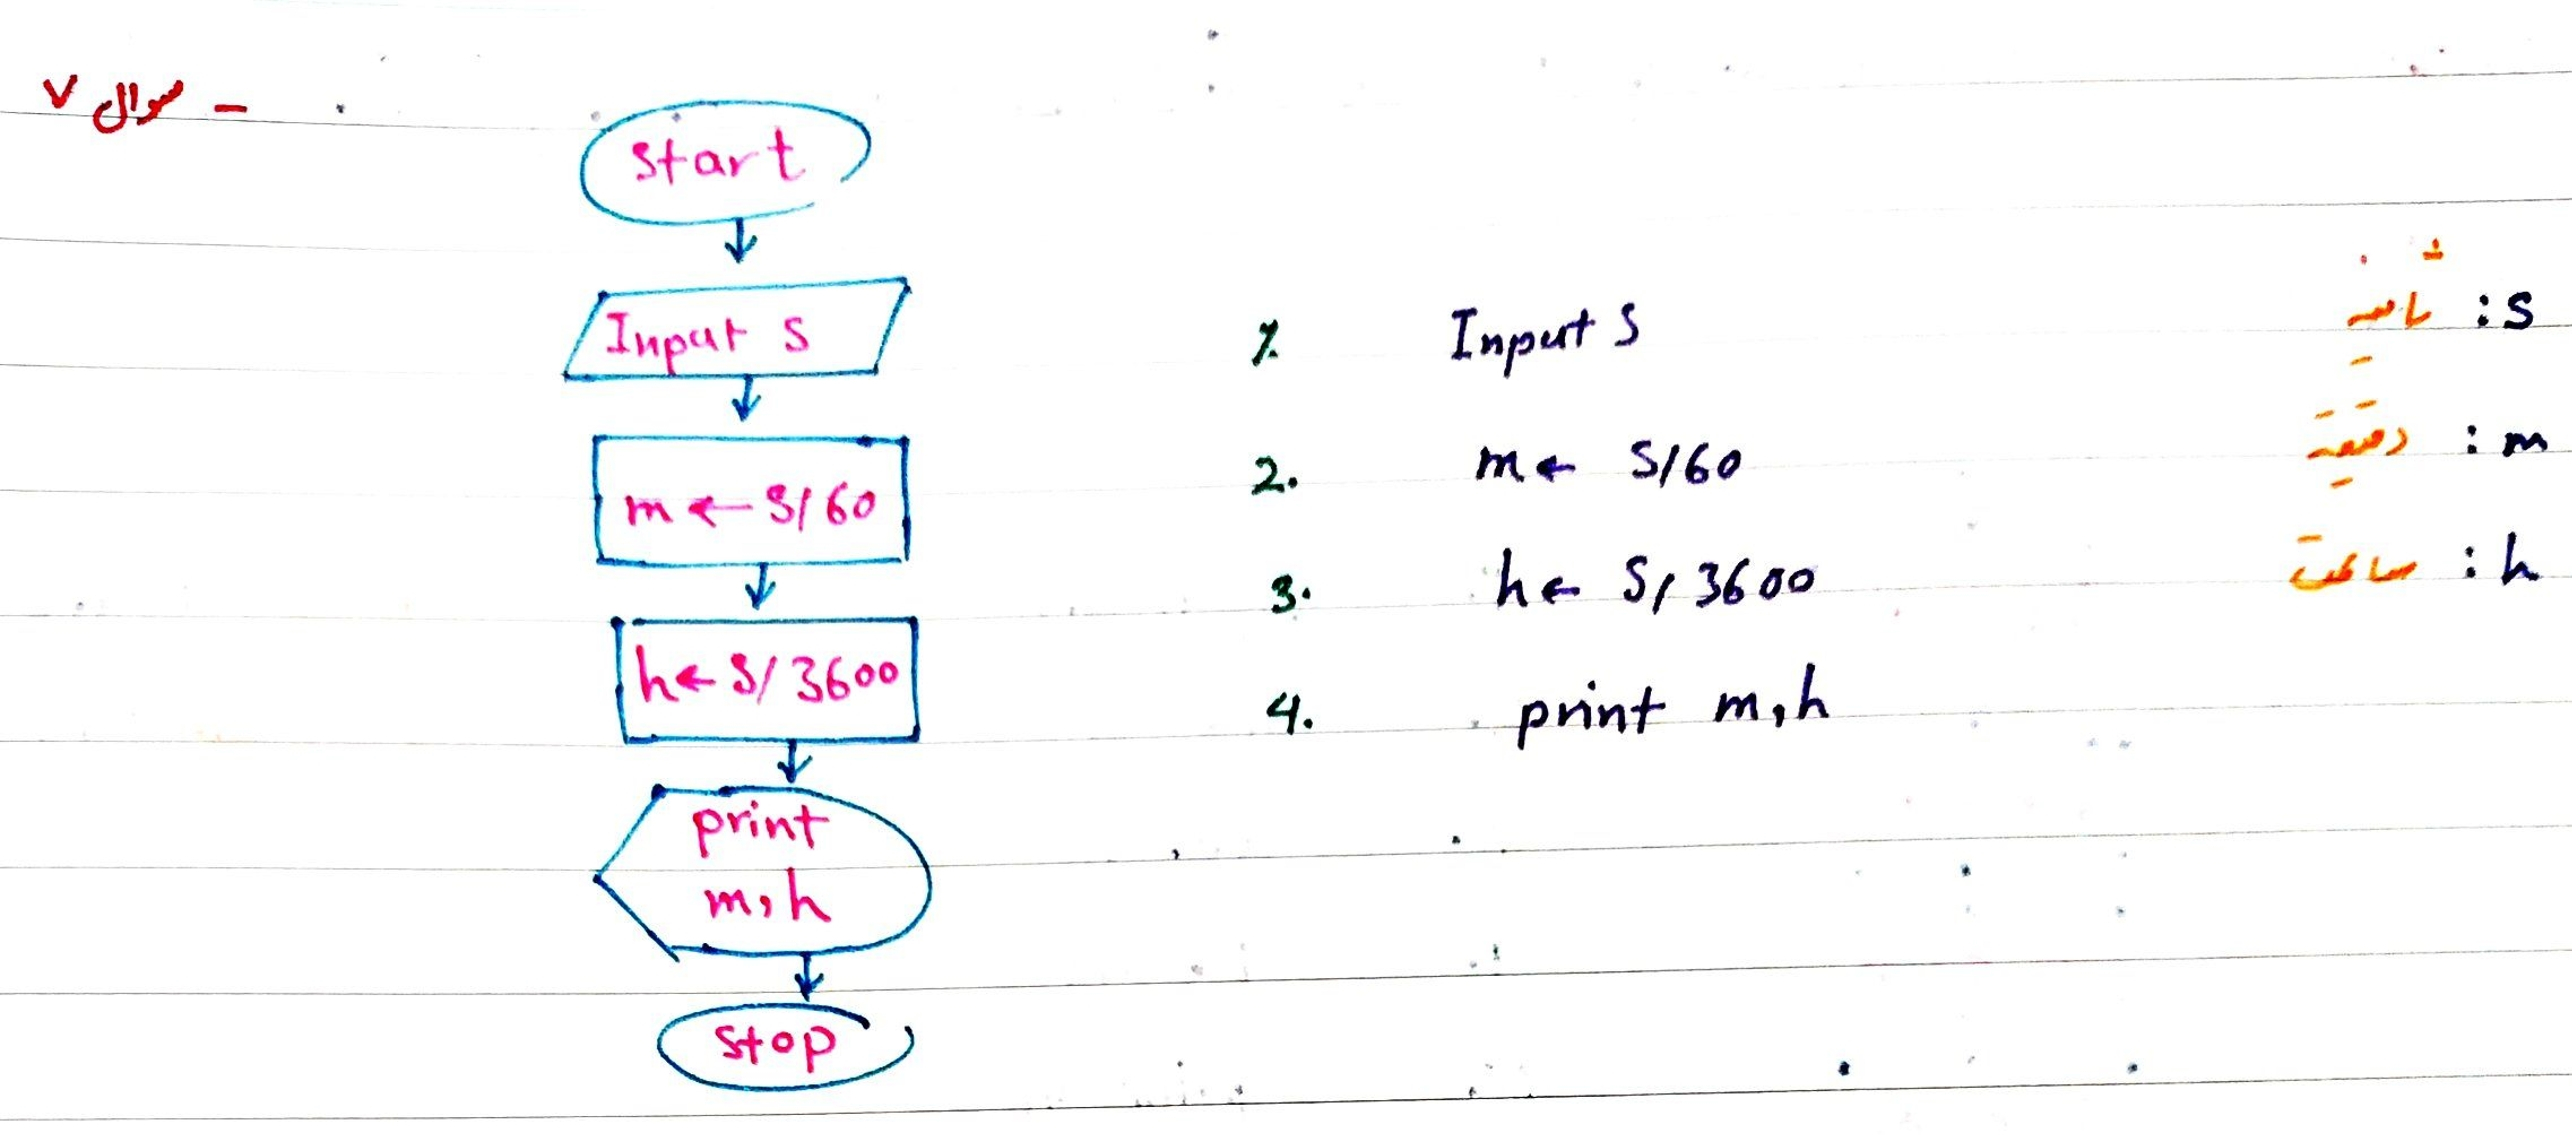 سوال ۷ -
start
Input S
m ← S/60
h ← S/3600
print
m,h
stop
1. Input S
2. m ← S/60
3. h ← S/3600
4. print m,h
s: ثانیه
m: دقیقه
h: ساعت